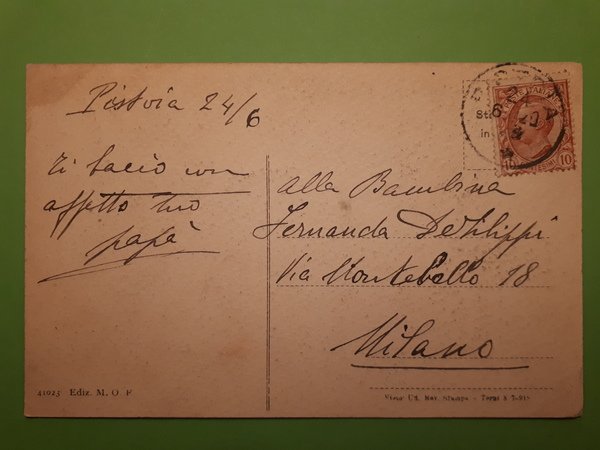 Pistoia 24/6
ti bacio con
affetto tuo
papà
Alla Bambina
Fernanda De Filippi
Via Montebello 18
Milano
10
41023 Ediz. M. O. F
Rev. Stampa - Terni